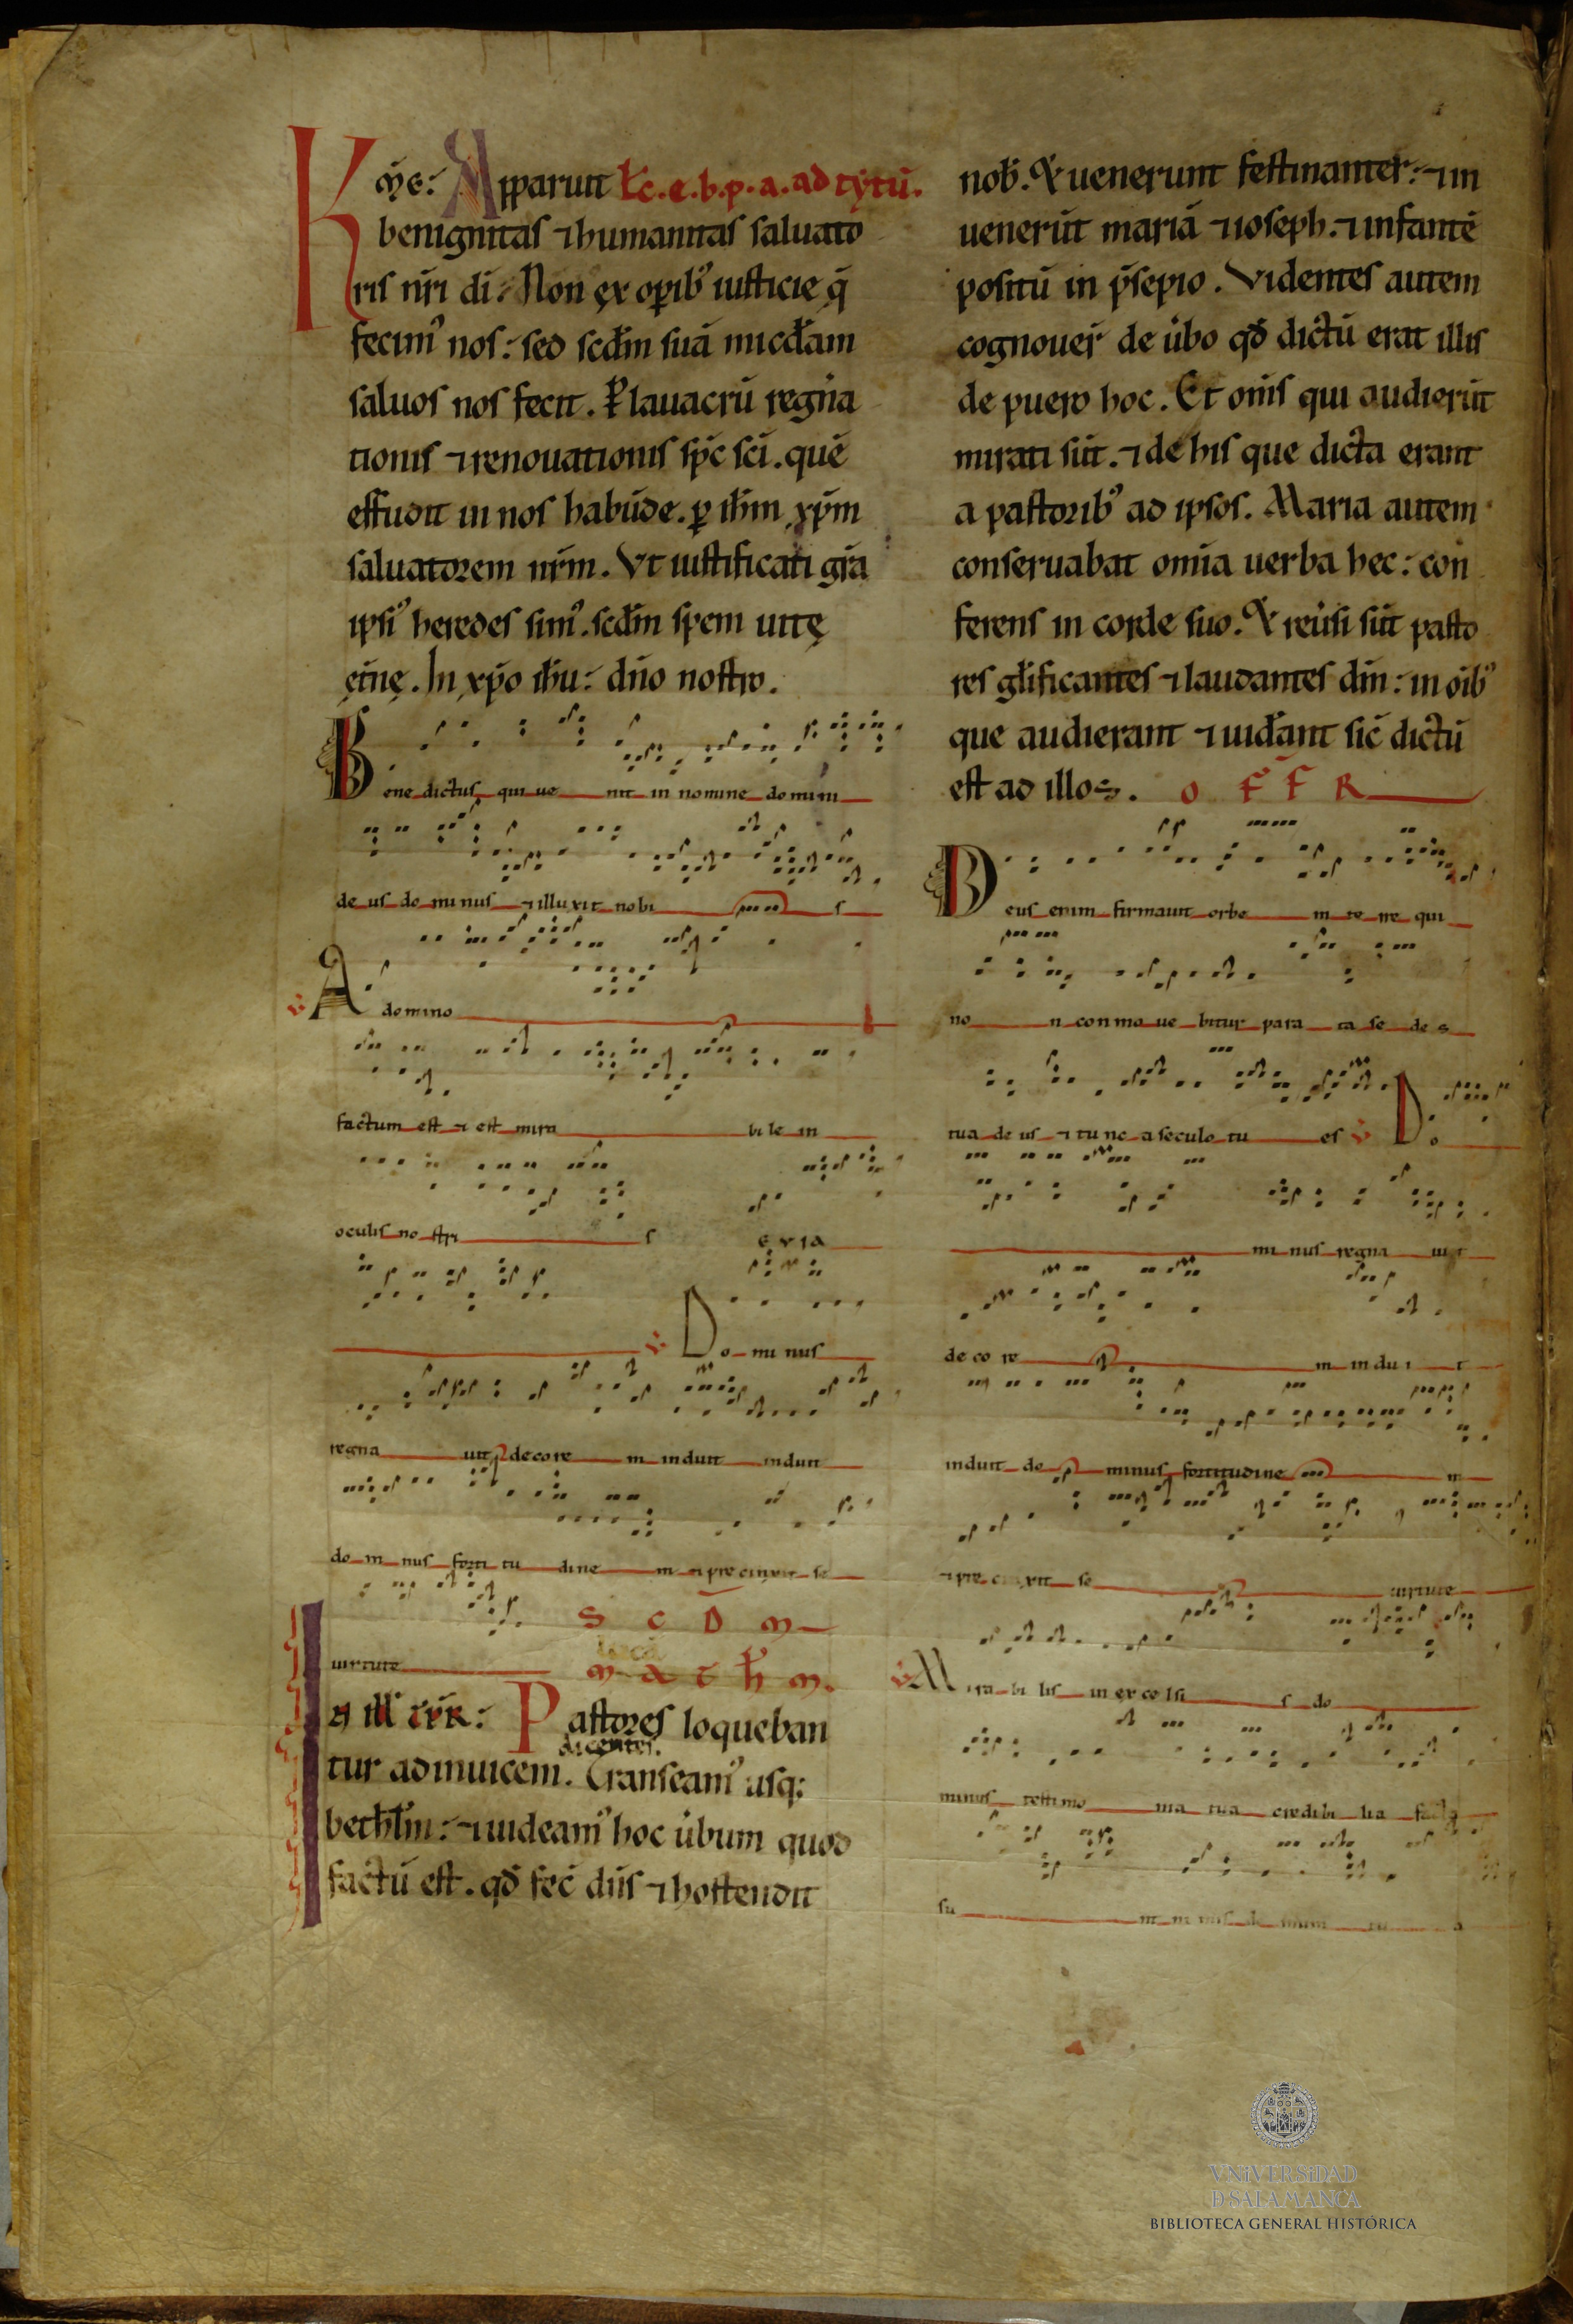 Km̄e: Apparuit Lc̄. e. b. p. a. ad tytū.
benignitas ⁊ humanitas saluato
ris nr̄i di: Non ex operib' iusticie q̄
fecim' nos: sed scd̄m suā mīcdam
saluos nos fecit. P̱ lauacrū regn̄a
tionis ⁊ renouationis sp̄c sc̄i. quē
effudit in nos habūde. ꝑ ih̄m xp̄m
saluatorem nr̄m. Vt iustificati gr̄a
ipsi' heredes sim'. scd̄m spem uitę
ęt̄nę. In xp̄o ih̄u: dn̄o nostro.
Bene dictus qui ue nit in nomine domini
de us do mi nus ⁊ illuxit nobi s
℣ A domino
factum est ⁊ est mira bi le in
oculis no stri s EVIA
℣ Do mi nus
regna uit decore m induit induit
do mi nus forti tu dine m ⁊ precinxit se
uirtute
S C D̄ M
M A T H̄ M.
In ill̄ tp̄r: Pastores loqueban
dicentes.
tur adinuicem. Transeam' usq;
bethl̄m: ⁊ uideam' hoc u̇bum quod
factū est. qd̄ fec̄ dn̄s ⁊ hostendit
nob̄. Et uenerunt festinanter: ⁊ in
uenerūt mariā ⁊ ioseph. ⁊ infantē
positū in p̄sepio. Videntes autem
cognouer̄ de u̇bo qd̄ dictū erat illis
de puero hoc. Et om̄s qui audierūt
mirati sūt. ⁊ de his que dicta erant
a pastorib' ad ipsos. Maria autem
conseruabat omīa uerba hec: con
ferens in corde suo. Et reu̇si sūt pasto
res gl̄ificantes ⁊ laudantes dm̄: in oīb'
que audierant ⁊ uid̄ant sic̄ dictū
est ad illos. O F F R
Deus enim firmauit orbe m te rre qui
no n conmo ue bitur para ta se de s
tua de us ⁊ tu nc a seculo tu es ℣ Do
mi nus regna ui t
deco re m indui t
induit do minus fortitudine m
⁊ pre cinxit se uirtute
℣ Mira bi lis in excelsi s do
minus testimo nia tua credibi lia facta
su nt ni mis